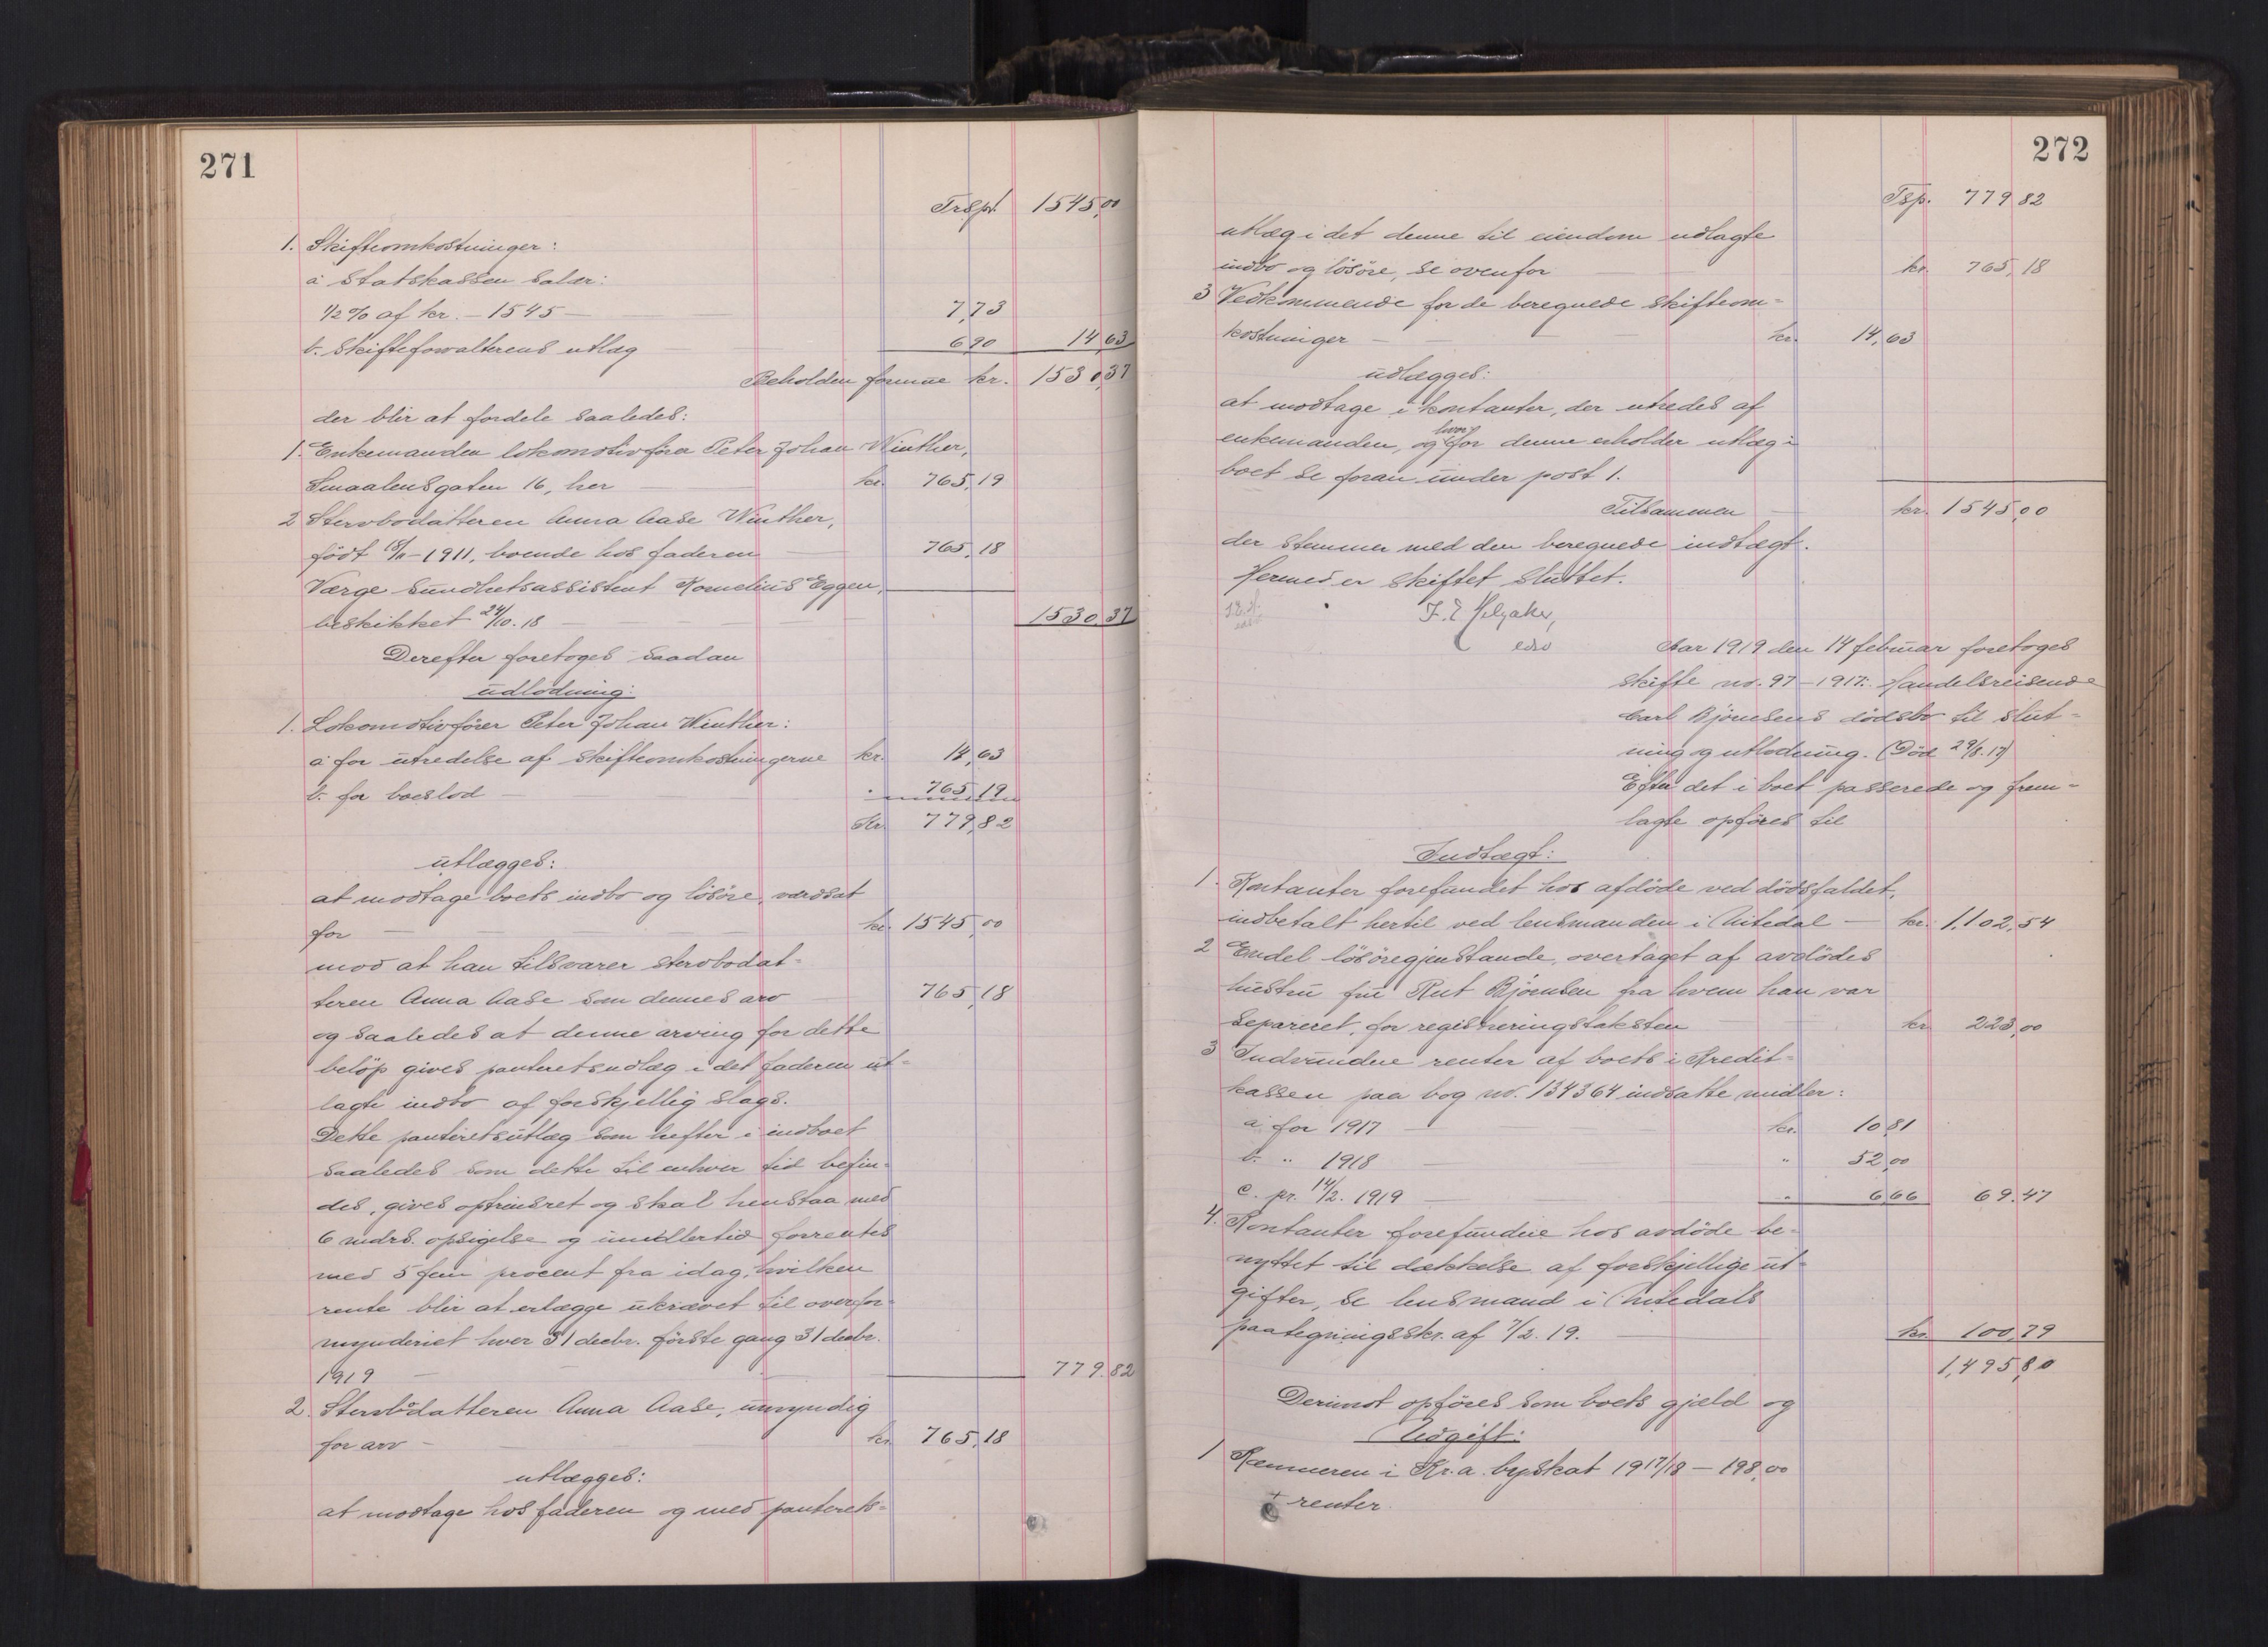 271
Trspt. 1545,00
1. Skifteomkostninger:
a Statskassen salær:
1/2 % af kr. - 1545 — 7,73
b. skifteforvalterens utlæg 6,90 14,63
Beholden formue kr. 1530,37
der blir at fordele saaledes:
1. Enkemanden lokomotivfører Peter Johan Winther,
Smaalensgaten 16, her — kr. 765,19
2 Stervbodatteren Anna Aase Winther,
født 18/11-1911, boende hos faderen — 765,18
Værge sundhetsassistent Kornelius Eggen,
beskikket 24/10.18 — 1530,37
Derefter foretoges saadan
udlodning:
1. Lokomotivfører Peter Johan Winther:
a for utredelse af skifteomkostningerne kr. 14,63
b. for boeslod — " 765,19
Kr. 779,82
utlægges:
at modtage boets indbo og løsøre, værdsat
for — kr. 1545,00
mod at han tilsvarer stervbodat-
teren Anna Aase som dennes arv 765,18
og saaledes at denne arving for dette
beløp gives panteretsudlæg i det faderen ut-
lagte indbo af forskjellig slags.
Dette panteretsutlæg som hefter i indboet
saaledes som dette til enhver tid befin-
des, gives optrinsret og skal henstaa med
6 mdrs. opsigelse og imidlertid forrentes
med 5 fem procent fra idag, hvilken
rente blir at erlægge ukrævet til overfor-
mynderiet hver 31 decbr. første gang 31 decbr.
1919 — 779.82
2. Stervbodatteren Anna Aase, umyndig
for arv — kr. 765,18
utlægges:
at modtage hos faderen og med panterets-
272
Tsp. 779 82
utlæg i det denne til eiendom udlagte
indbo og løsøre, se ovenfor kr. 765,18
3 Vedkommende for de beregnede skifteom-
kostninger — kr. 14,63
udlægges:
at modtage i kontanter, der utredes af
enkemanden, og hvorfor denne erholder utlæg i
boet se foran under post 1.
Tilsammen — kr. 1545,00
der stemmer med den beregnede indtægt.
Hermed er skiftet sluttet.
edso
Aar 1919 den 14 februar foretoges
skifte no. 97-1917: Handelsreisende
Carl Bjørnsens dødsbo til slut-
ning og utlodning. (Død 29/8.17)
Efter det i boet passerede og frem-
lagte opføres til
Indtægt:
1. Kontanter forefundet hos afdøde ved dødsfaldet,
indbetalt hertil ved lensmanden i Nitedal — kr. 1,102,54
2 Endel løsøregjenstande, overtaget af avdødes
hustru fru Rut Bjørnsen fra hvem han var
separeret, for registreringstaksten kr. 223,00
3 Indvundne renter af boets i Kredit-
kassen paa bog no. 134364 indsatte midler:
a for 1917 — kr. 10,81
b. " 1918 — " 52,00
c. pr. 14/2. 1919 — " 6,66 69.47
4. Kontanter forefundne hos avdøde be-
nyttet til dækkelse af forskjellige ut-
gifter, se lensmand i Nitedals
paategningsskr. af 7/2. 19. — kr. 100,79
1,495,80
Derimot opføres som boets gjæld og
Udgift:
1 Kemneren i Kr.a. byskat 1917/18 - 198,00
+ renter.